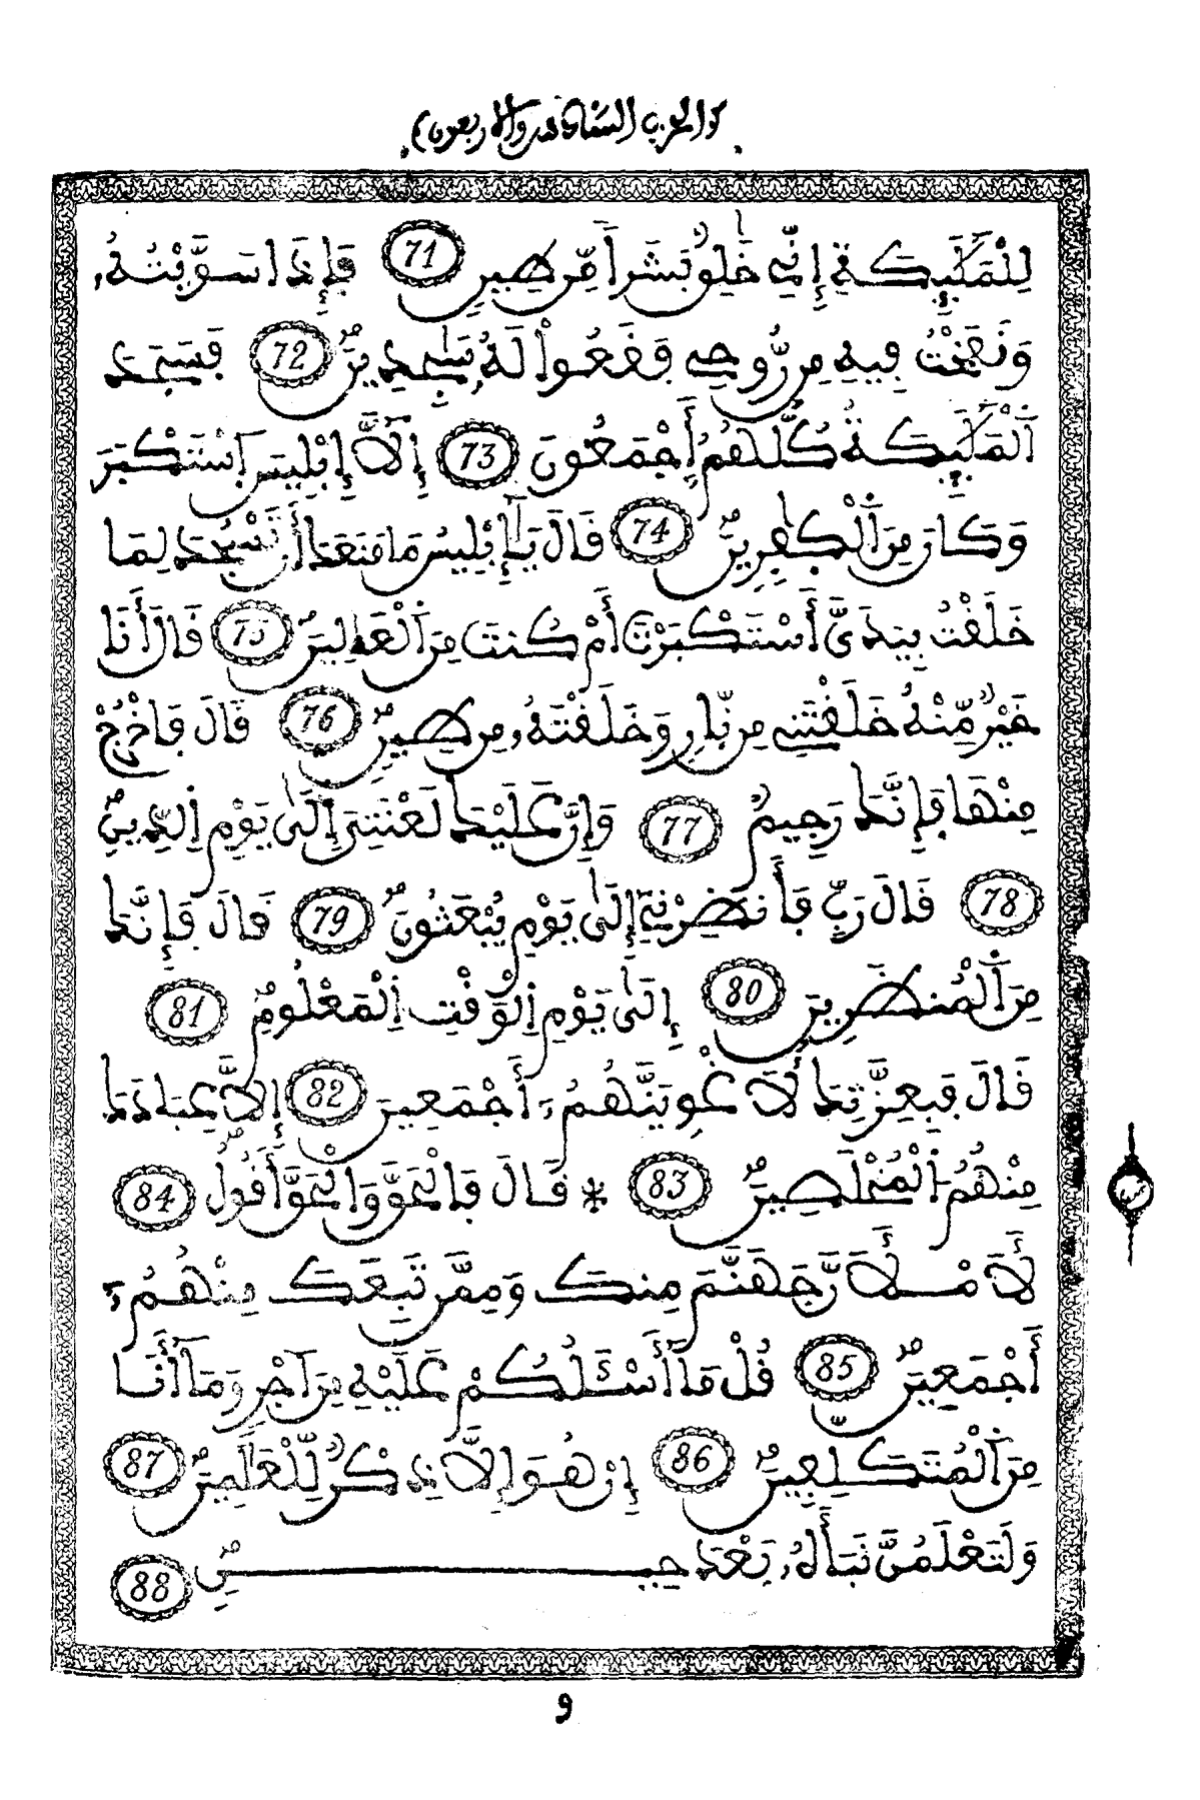 (والحزب السادس والاربعون)
لِلْمَلَٰٓئِكَةِ إِنِّے خَٰلِقٌۢ بَشَراٗ مِّن طِينٖ 71 فَإِذَا سَوَّيْتُهُۥ
وَنَفَخْتُ فِيهِ مِن رُّوحِے فَقَعُواْ لَهُۥ سَٰجِدِينَۖ 72 فَسَجَدَ
اَ۬لْمَلَٰٓئِكَةُ كُلُّهُمُۥٓ أَجْمَعُونَ 73 إِلَّآ إِبْلِيسَ اَ۪سْتَكْبَرَ
وَكَانَ مِنَ اَ۬لْكٰ۪فِرِينَۖ 74 قَالَ يَٰٓإِبْلِيسُ مَا مَنَعَكَ أَن تَسْجُدَ لِمَا
خَلَقْتُ بِيَدَيَّ أَسْتَكْبَرْتَ أَمْ كُنتَ مِنَ اَ۬لْعَالِينَۖ 75 قَالَ أَنَا
خَيْرٞ مِّنْهُ خَلَقْتَنِے مِن نّ۪ارٖ وَخَلَقْتَهُۥ مِن طِينٖۖ 76 قَالَ فَاخْرُجْ
مِنْهَا فَإِنَّكَ رَجِيمٞۖ 77 وَإِنَّ عَلَيْكَ لَعْنَتِيَ إِلَىٰ يَوْمِ اِ۬لدِّينِۖ
78 قَالَ رَبِّ فَأَنظِرْنِےٓ إِلَىٰ يَوْمِ يُبْعَثُونَۖ 79 قَالَ فَإِنَّكَ
مِنَ اَ۬لْمُنظَرِينَ 80 إِلَىٰ يَوْمِ اِ۬لْوَقْتِ اِ۬لْمَعْلُومِۖ 81
قَالَ فَبِعِزَّتِكَ لَأُغْوِيَنَّهُمُۥٓ أَجْمَعِينَ 82 إِلَّا عِبَادَكَ
مِنْهُمُ اُ۬لْمُخْلَصِينَۖ 83 * قَالَ فَالْحَقَّ وَالْحَقَّ أَقُولُ 84
لَأَمْلَأَنَّ جَهَنَّمَ مِنكَ وَمِمَّن تَبِعَكَ مِنْهُمُۥٓ
أَجْمَعِينَۖ 85 قُلْ مَآ أَسْـَٔلُكُمْ عَلَيْهِ مِنَ اَجْرٖ وَمَآ أَنَا
مِنَ اَ۬لْمُتَكَلِّفِينَۖ 86 إِنْ هُوَ إِلَّا ذِكْرٞ لِّلْعَٰلَمِينَۖ 87
وَلَتَعْلَمُنَّ نَبَأَهُۥ بَعْدَ حِينِۖ 88
9